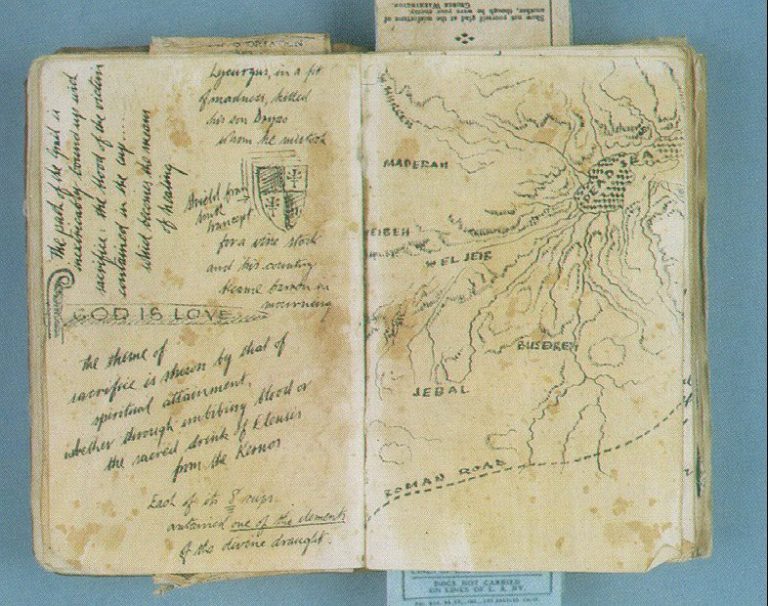 Show not yourself glad at the misfortune of
another, though he were your enemy.
GEORGE WASHINGTON
The path of the Grail is
inextricably bound up with
sacrifice: the blood of the victim
contained in the cup....
which becomes the means
of healing
Lycurgus, in a fit
of madness, killed
his son Dryas
whom he mistook
Shield from
south
transept
for a vine stock
and his country
became barren in
mourning
GOD IS LOVE
the theme of
sacrifice is shewn by that of
spiritual attainment,
whether through imbibing blood or
the sacred drink of Eleusis
from the Kernos
Each of its 8 cups
contained one of the elements
of the divine draught.
MADERAH
DEAD SEA
EL JEIB
BUSEREH
JEBAL
ROMAN ROAD
DOGS NOT CARRIED
ON LINES OF L. A. RY.